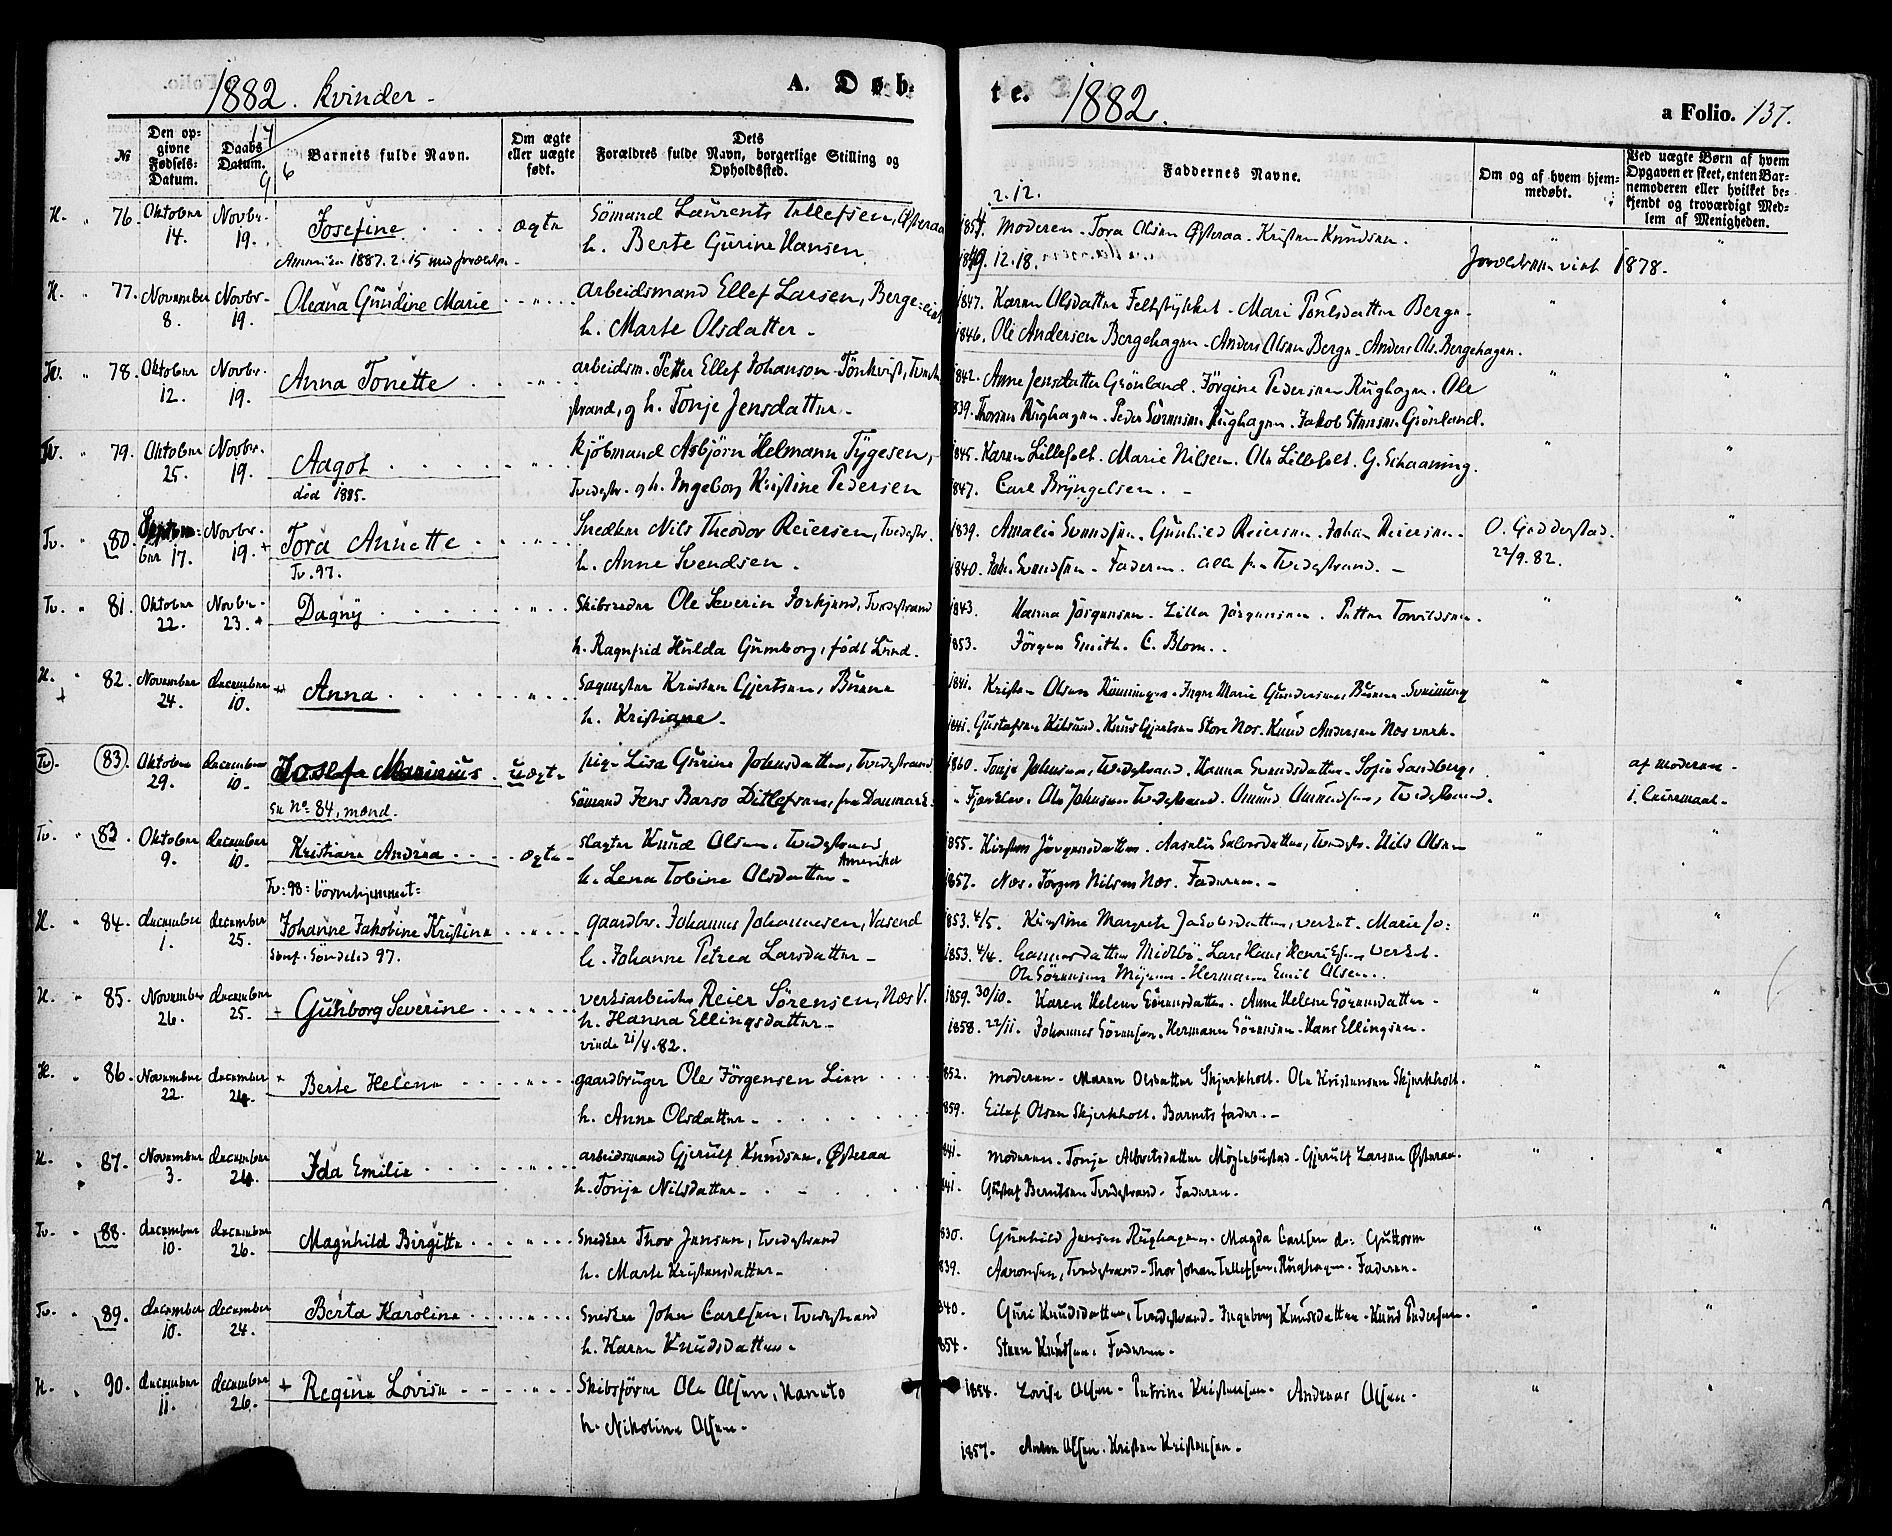 1882. Kvinder. A. Døb-
№
Den op-
givne
Fødsels-
Datum.
Daabs
Datum.
17
9
6
Barnets fulde Navn.
Om ægte
eller uægte
født.
Dets
Forældres fulde Navn, borgerlige Stilling og
Opholdssted.
H. " 76. Oktober 14. Novbr. 19. Josefine ægte Sömand Laurents Tellefsen, Østeraa
h. Berte Gurine Hansen
Amerika 1887. 2. 15 med forældre
H. " 77. November 8. Novbr. 19. Oleana Gundine Marie " arbeidsmand Ellef Larsen, Berge
h. Marte Olsdatter -
Tv. " 78. Oktober 12. Novbr. 19. Anna Tonette " arbeidsm. Petter Ellef Johanson Tönkvist, Tvede-
strand, og h. Tonje Jensdatter -
Tv. " 79. Oktober 25. Novbr. 19. Aagot " Kjöbmand Asbjørn Helmann Tygesen,
død 1885. Tvedestr. og h. Ingeborg Kristine Pedersen
Tv. " 80. Septem-
ber 17. Novbr. 19. Tora Annette " Snedker Nils Theodor Reiersen, Tvedestr.
Tv. 97. h. Anne Svendsen.
Tv. " 81. Oktober 22. Novbr. 23. Dagny " Skibsreder Ole Severin Torkjend, Tvedestrand
h. Ragnfrid Hulda Gumborg, født Lund.
H. 82. November 24. december 10. Anna " Sagmester Kristen Gjertsen, Buene
h. Kristiane.
Tv. 83. Oktober 29. december 10. Josefa Marinius uægte pige Lisa Gurine Johnsdatter, Tvedestrand
se No 84, mænd. Sömand Jens Barso Ditlefsen, fra Danmark.
Tv. " 83. Oktober 9. december 10. Kristiane Andrea ægte Slagter Knud Olsen, Tvedestrand
Tv: 98: börnehjemmet: h. Lena Tobine Olsdatter - Amerika
H. " 84. december 1. december 25. Johanne Jakobine Kristine " gaardbr. Johannes Johannesen, Vasend
Söndeled 97. h. Johanne Petrea Larsdatter -
H. " 85. November 26. december 25. Gunborg Severine " verksarbeider Reier Sörensen, Næs V.
h. Hanna Ellingsdatter -
viede 21/4.82.
H. " 86. November 22. december 24. Berte Helene " gaardbruger Ole Jörgensen Lien
h. Anne Olsdatter -
H. " 87. November 3. december 24. Ida Emilie " arbeidsmand Gjerulf Knudsen, Østeraa
h. Tonje Nilsdatter -
Tv. " 88. december 10. december 26. Magnhild Birgitte " Snedker Thor Jensen, Tvedestrand
h. Marte Kristensdatter -
Tv. " 89. december 10. december 24. Berta Karoline " Snedker John Carlsen, Tvedestrand
h. Karen Knudsdatter -
H. " 90. december 11. december 26. Regine Lovise " Skibsförer Ole Olsen,
h. Nikoline Olsen -
te. 1882. a Folio. 137.
Faddernes Navne.
Om og af hvem hjem-
medøbt.
Ved uægte Børn af hvem
Opgaven er skeet, enten Bar-
nemoderen eller hvilket be-
kjendt og troværdigt Med-
lem af Menigheden.
2. 12.
1854. Moderen - Tora Olsen Østeraa - Kristen Knudsen.
1849. 12. 18. Forældrene viet 1878.
1847. Karen Olsdatter Feltstykket - Mari Poulsdatter Berge -
1846. Ole Andersen Bergehagen - Anders Olsen Berge - Anders Ols. Bergehagen.
1842. Anne Jensdatter Grönland. Jörgine Pedersen Rughagen. Ole
1839. Thorsen Rughagen. Peder Sörensen Rughagen. Jakob Grönland.
1845. Karen Lillefelt. Marie Nilsen. Ole Lillefelt. G. Schaaning.
1847. Carl Bryngelsen. -
1839. Amalie Svendsen. Gunhild Reiersen. Johan Reiersen - O. Godderstad.
22/9. 82.
1840. Joh. Svendsen - Faderen. alle fra Tvedestrand. -
1843. Hanna Jörgensen - Lilla Jörgensen. Petter
1853. Jörgen Smith. C. Blom.
1841. Kristen Olsen - Inger Marie Gundersen Buene -
1841. Gustafsen Kilsund. Knud Gjertsen Store Næs. Knud Andersen Næs verk.
1860. Tonje Johnsen, Tvedestrand. Hanna Svendsdatter - Sofie Sandberg, af moderen -
" Ole Johnsen Tvedestrand. Amund Amundsen, Tvedestrand.
1855. Kirsten Jörgensdatter. Aaselie Salvesdatter, Tvedestr. Nils Olsen
1857. Næs. Jörgen Nilsen Næs. Faderen. -
1853. 4/5. Kirstine Margrete Jakobsdatter, verket. Marie Jo:
1853. 4/4. hannesdatter Midtbö - Lars Hans Henriksen Verket -
Ole Sörensen - Hermann Emil Olsen.
1859. 30/10. Karen Helene Sörensdatter. Anne Helene Sörensdatter -
1858. 22/11. Johannes Sörensen. Hermann Sörensen. Hans Ellingsen.
1852. moderen. Maren Olsdatter Skjerkholt. Ole Kristensen Skjerkholt.
1859. Eilef Olsen Skjerkholt. Barnets fader. -
1841. moderen. Tonje Albertsdatter Möglebustad - Gjerulf Larsen Østeraa.
1841. Gustaf Berntsen Tvedestrand - Faderen.
1830. Gunhild Jensen Rughagen. Magda Carlsen do: Guttorm
1839. Aaronsen, Tvedestrand - Thor Johan Tellefsen, Rughagen - Faderen.
1840. Guri Knudsdatter, Tvedestrand - Ingeborg Knudsdatter - Knud Pedersen
1854. Steen Knudsen. Faderen -
1854. Lovise Olsen - Petrine Kristensen - Andreas Olsen -
1857. Anton Olsen. Kristen Kristensen -